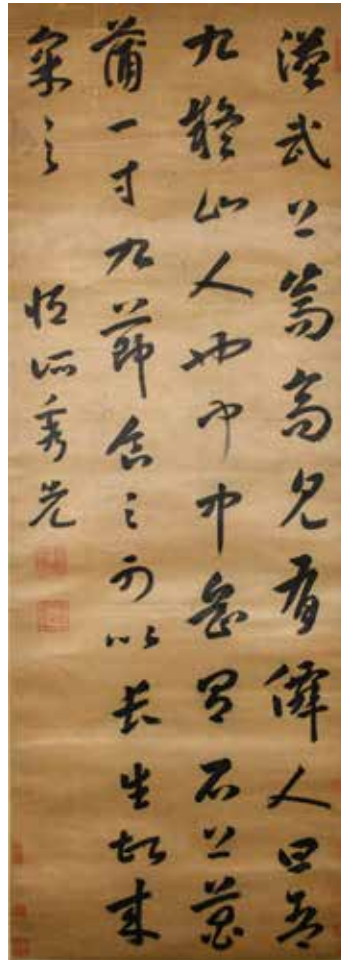 漢武上嵩高見有僊人曰吾
九疑山人也聞中岳有石上菖
蒲一寸九節食之可以長生故来
采之
恒所秀先